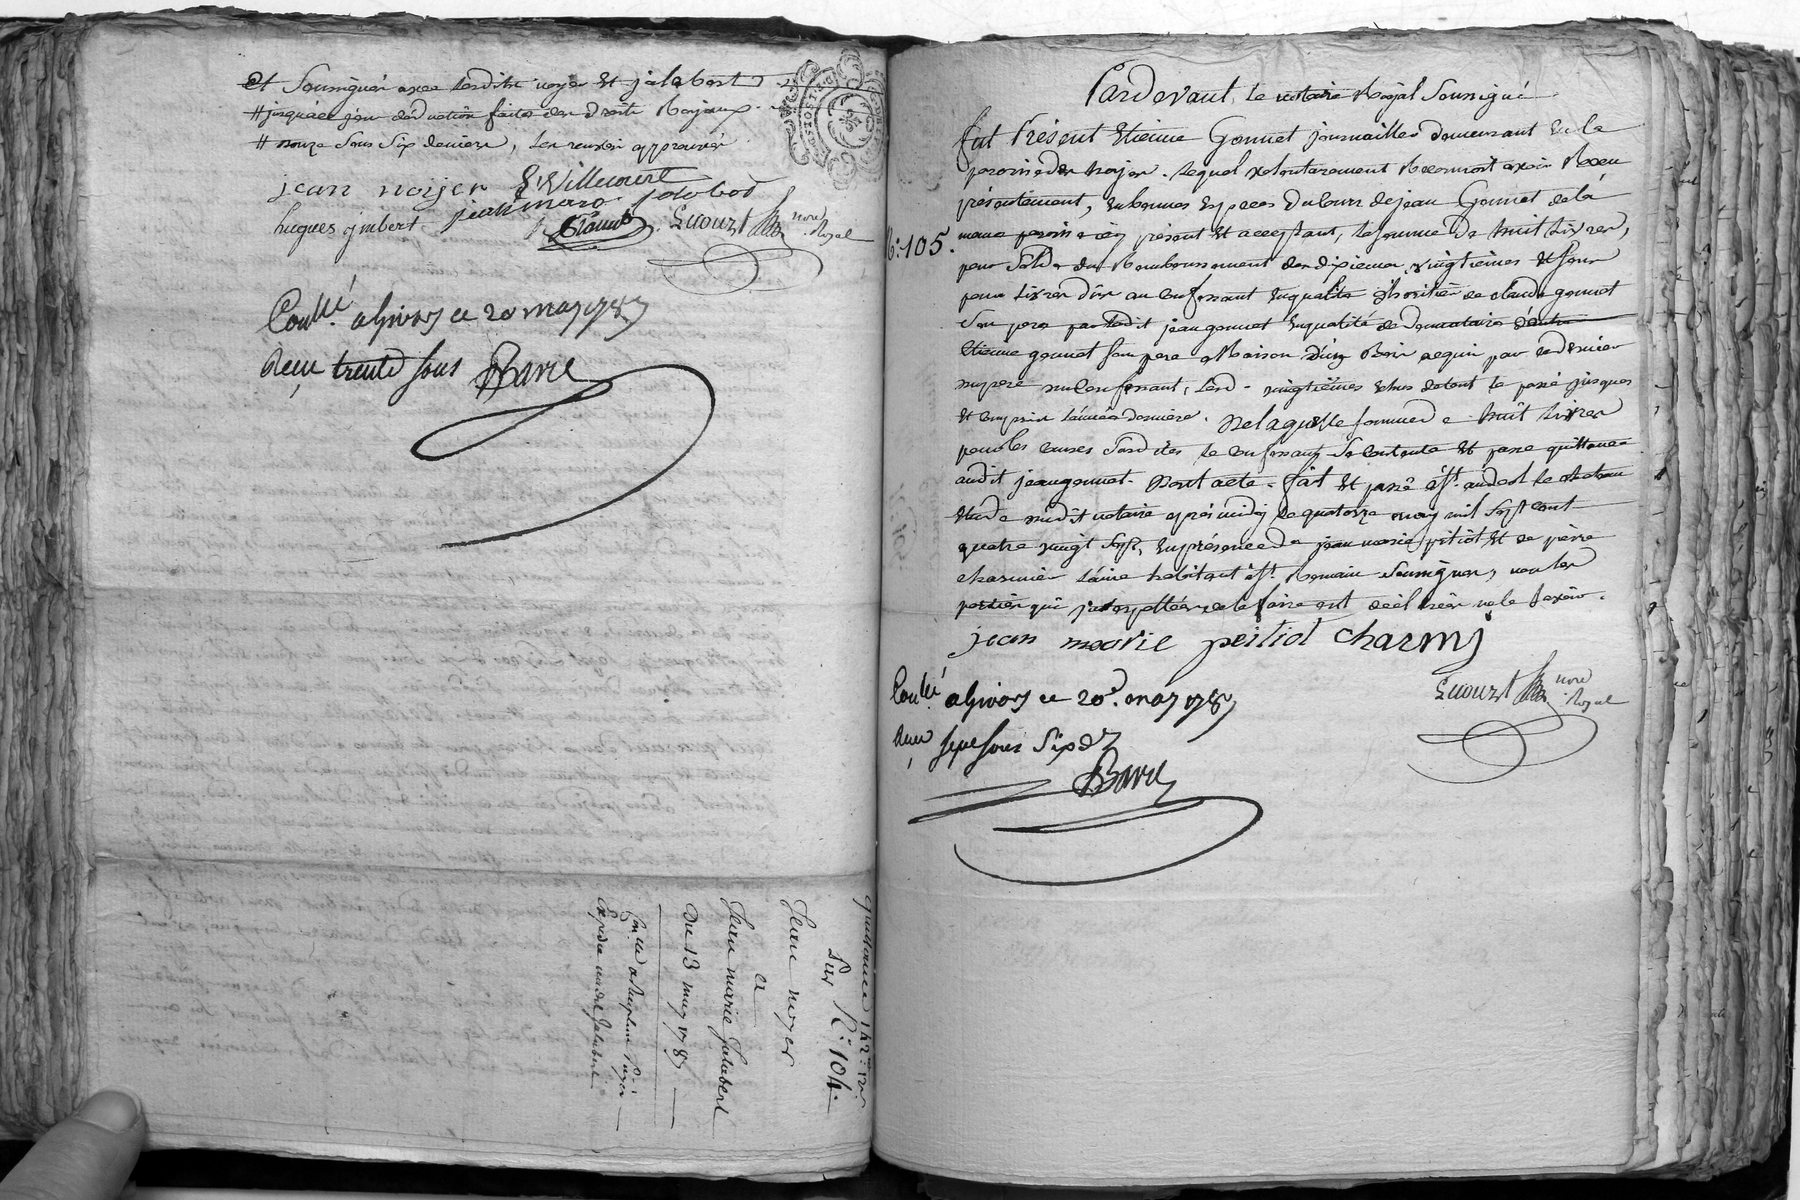 et Soussignés avec lesdits noyer et jalabert
# jusquàce jour deduction faites des droits Royaux
# onze sous six deniers, les renvois approuvés
jean noyer G Villecourt
hugues jmbert jean mara jalabert
Lucourt nore Royal
Conllé. a Givors ce 20 may 1787
Recu trente sous Barre
quittance 142# 12s
Sur N°. 104.
Jean noyer
a
Jean marie Jalabert
Du 13 may 1787
Expediée audit Jalabert
Pardevant le notaire Royal Soussigné
fut Présent Etienne Gonnet journaillier demeurant en la
paroisse des hayes. lequel volontairement Reconnoit avoir Receu
présentement, en bonnes Especes du Cours de jean Gonnet de la
N°: 105.
meme paroisse icy présent et acceptant, la somme de huit Livres,
pour Solde du Remboursement des dixiemes vingtiemes et sous
pour Livre dûs au Confessant en qualité d'heritier de claude gonnet
Son pere par ledit jean gonnet en qualité de Donnataire d'autre
Etienne gonnet son pere a Raison d'un Bois acquis par ce dernier
du pere du Confessant, lesd. vingtiemes échus de tout le passé jusques
et compris l'année derniere. De laquelle somme de huit Livres
pour les causes Sus dites le Confessant Se Contente et passe quittance
audit jean gonnet. Dont acte. fait et passé à St. andeol le chateau
Etude dudit notaire après midy le quatorze may mil Sept cent
quatre vingt Sept, En présence de jean marie pitiot et de pierre
charmier L'ainé habitant à St. Romain Soussignés, non les
parties qui jnterpellées de le faire ont déclaré ne le Savoir.
jean marie peitiot charmj
Lucourt nore Royal
Conllé a Givors ce 20d. may 1787
Recu sept sous Six ds
Barre